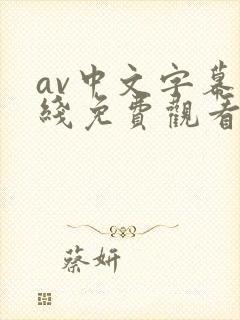 av中文字幕
綫免費觀看
蔡妍